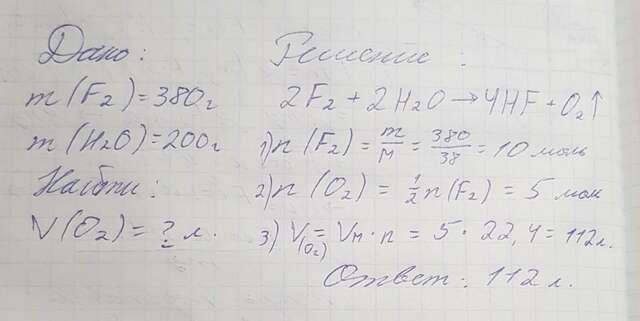 Дано:
m(F₂)=380г
m(H₂O)=200г
Найти:
V(O₂)=? л.
Решение:
2F₂+2H₂O→4HF+O₂↑
1) n(F₂)=m/M=380/38=10 моль
2) n(O₂)=1/2n(F₂)=5 мол
3) V(O₂)=Vм·n=5·22,4=112л.
Ответ: 112 л.